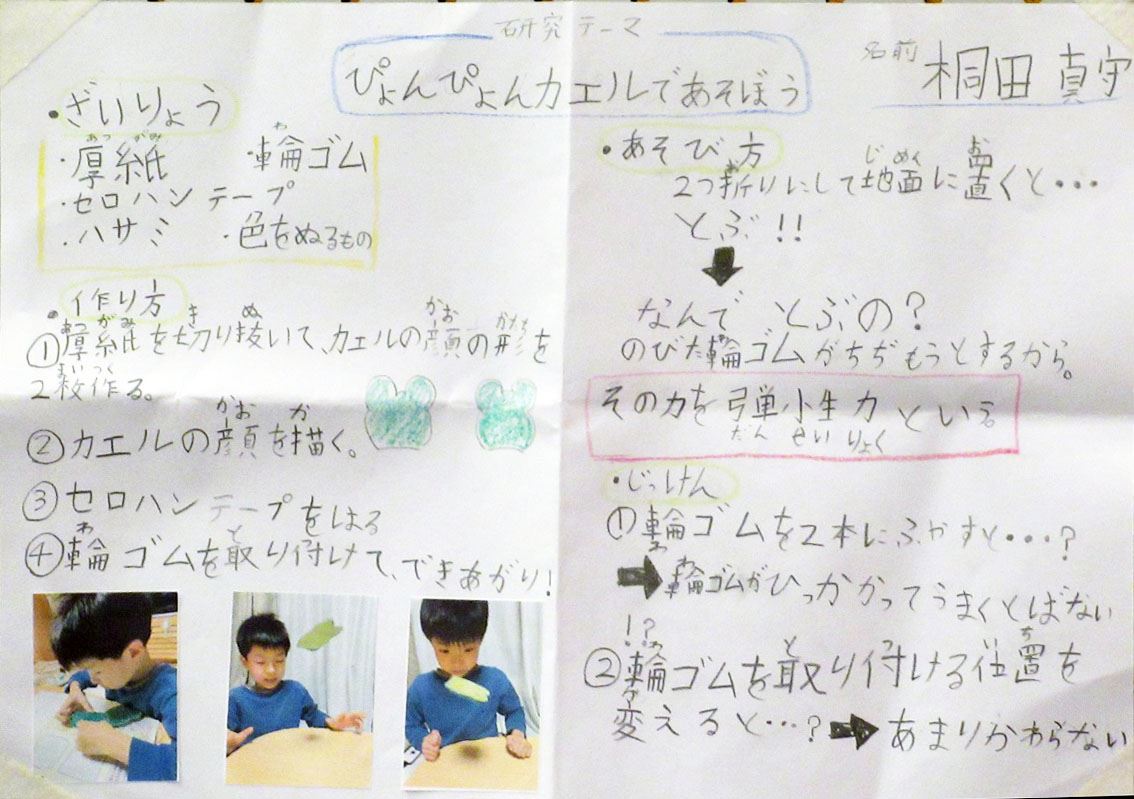 研究テーマ
ぴょんぴょんカエルであそぼう
名前 桐田 真守
・ざいりょう
あつ がみ わ
・厚紙 ・輪ゴム
・セロハンテープ
・ハサミ ・色をぬるもの
・作り方
あつ がみ き ぬ かお かたち
①厚紙を切り抜いて、カエルの顔の形を
まい つく
2枚作る。
かお か
②カエルの顔を描く。
③セロハンテープをはる
わ と
④輪ゴムを取り付けて、できあがり!
・あそび方
お じ めん お
2つ折りにして地面に置くと・・・
とぶ!!
なんで とぶの?
わ
のびた輪ゴムがちぢもうとするから。
その力を弾性力という。
だん せい りょく
・じっけん
①輪ゴムを2本にふやすと・・・?
わ
わ
➡輪ゴムがひっかかってうまくとばない
!?
わ と つ いち
②輪ゴムを取り付ける位置を
か
変えると・・・?➡あまりかわらない